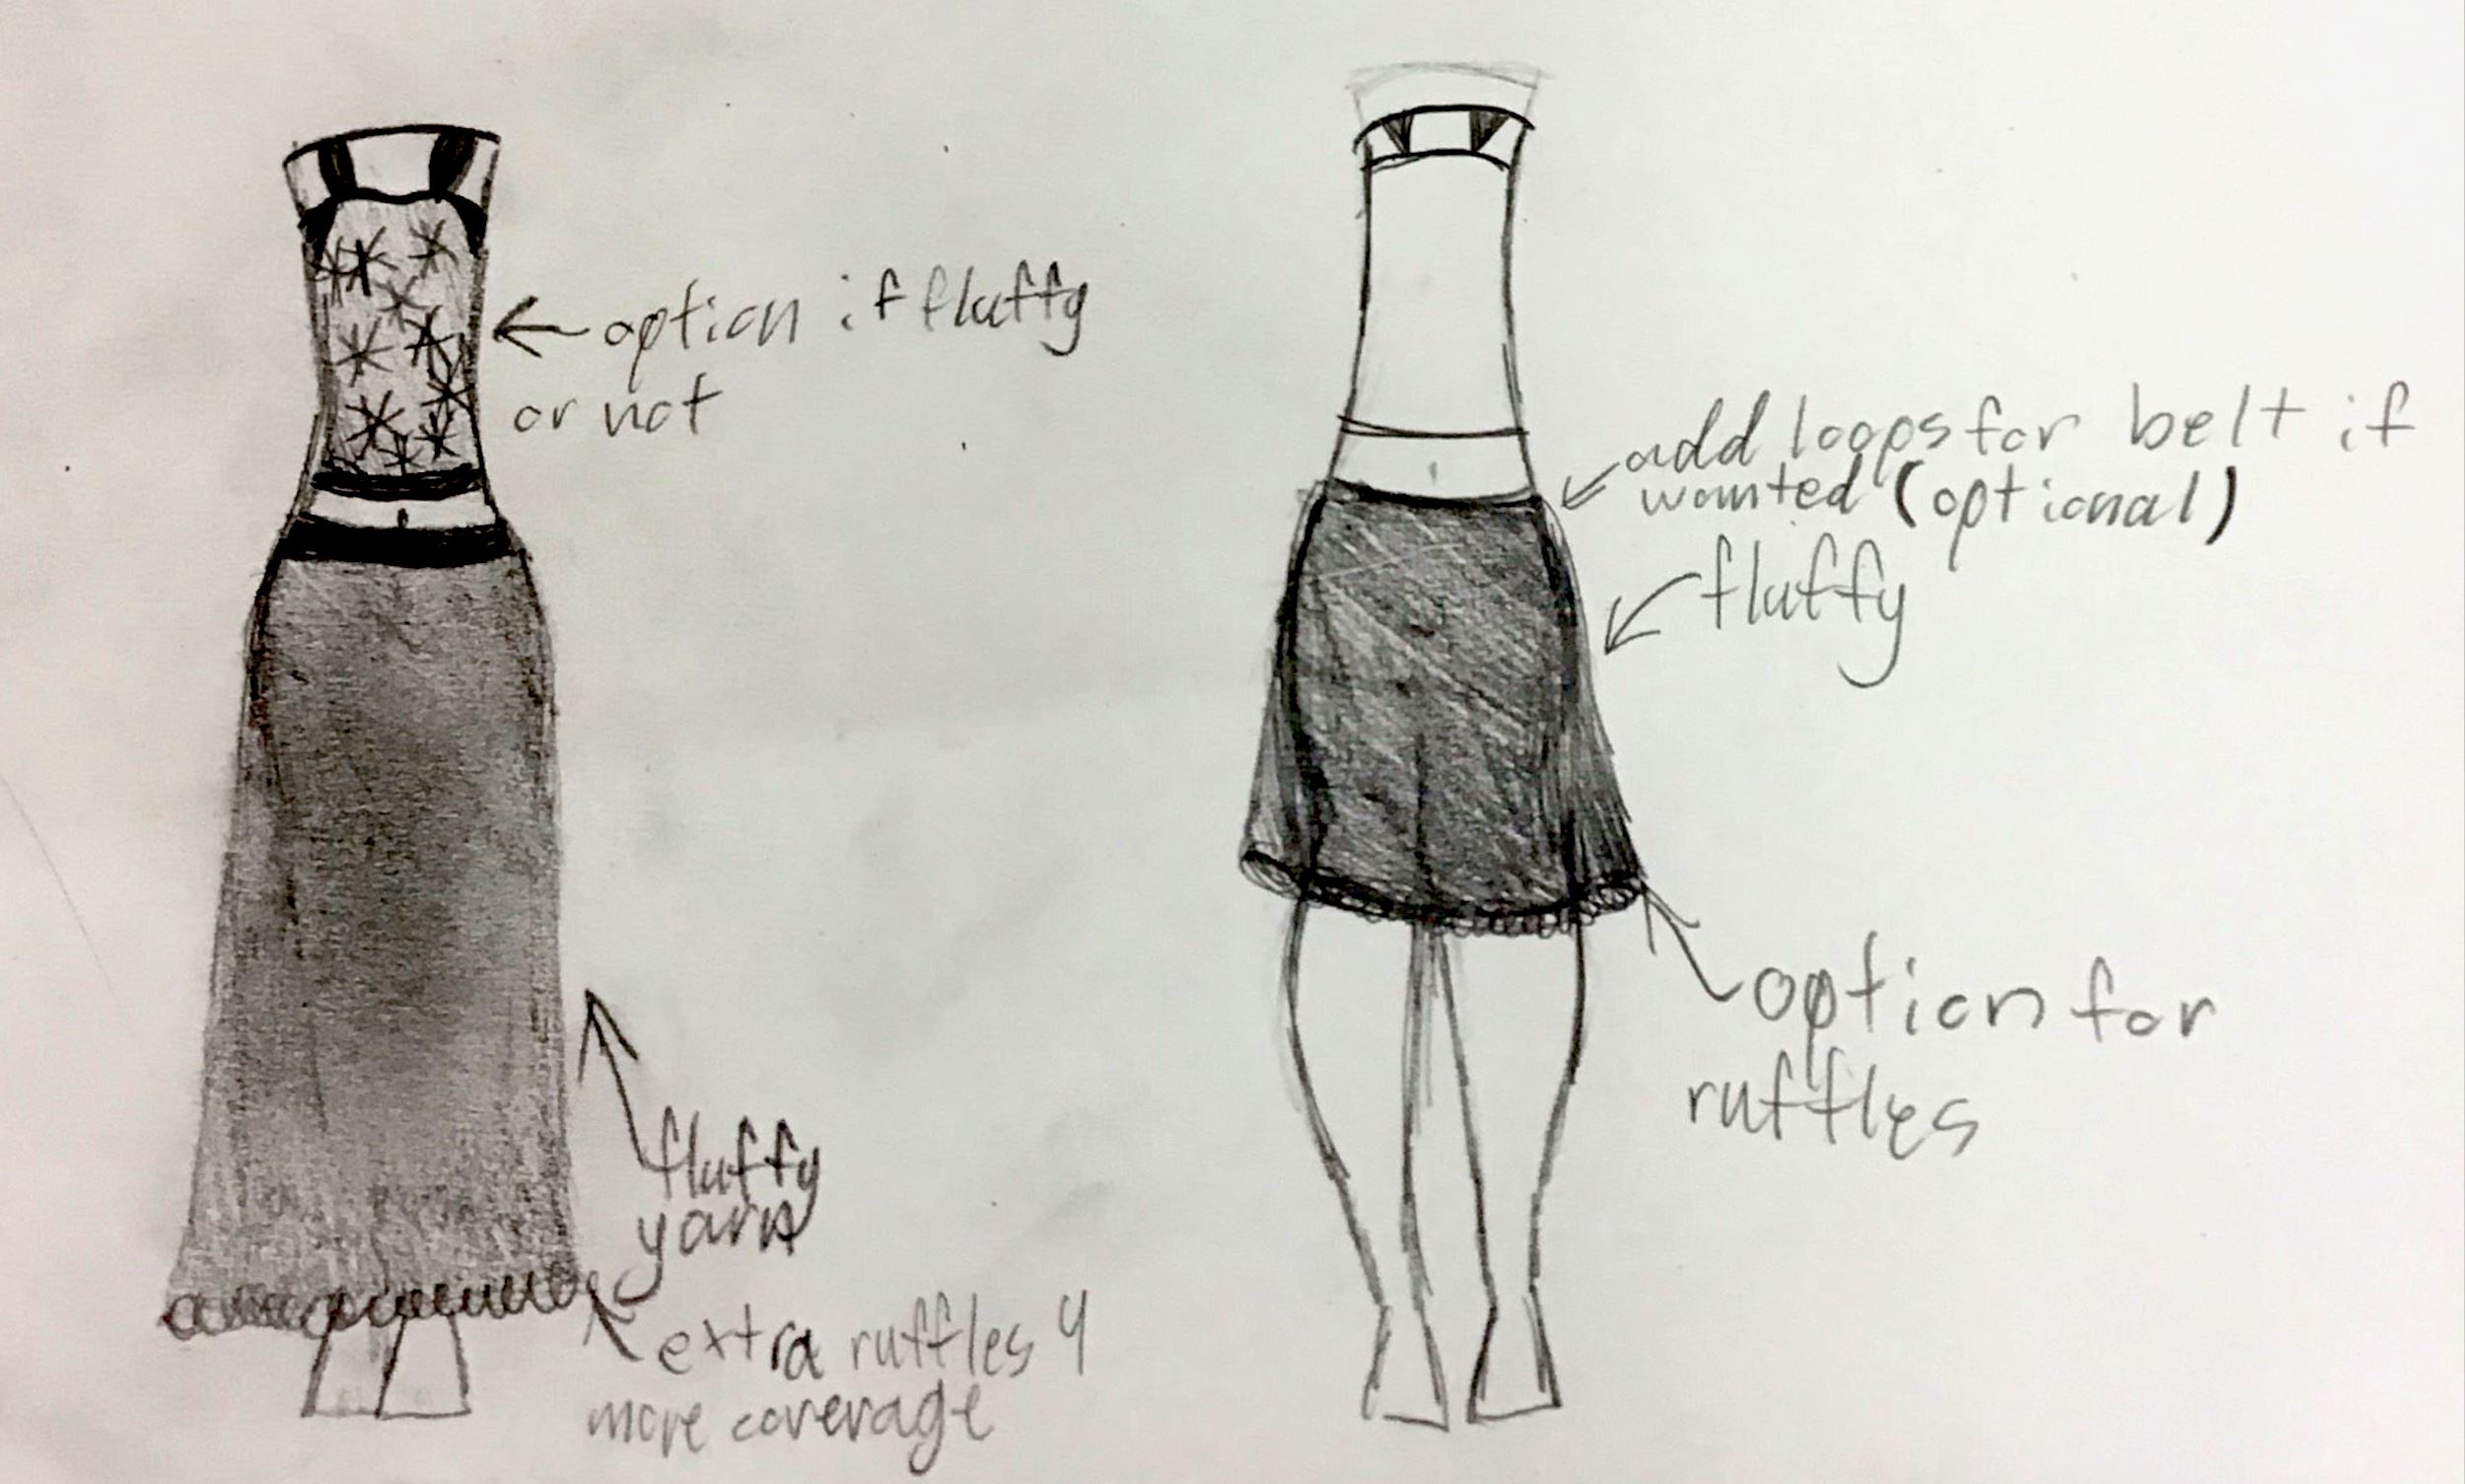 option if fluffy
or not
fluffy
yarn
extra ruffles 4
more coverage
add loops for belt if
wanted (optional)
fluffy
option for
ruffles